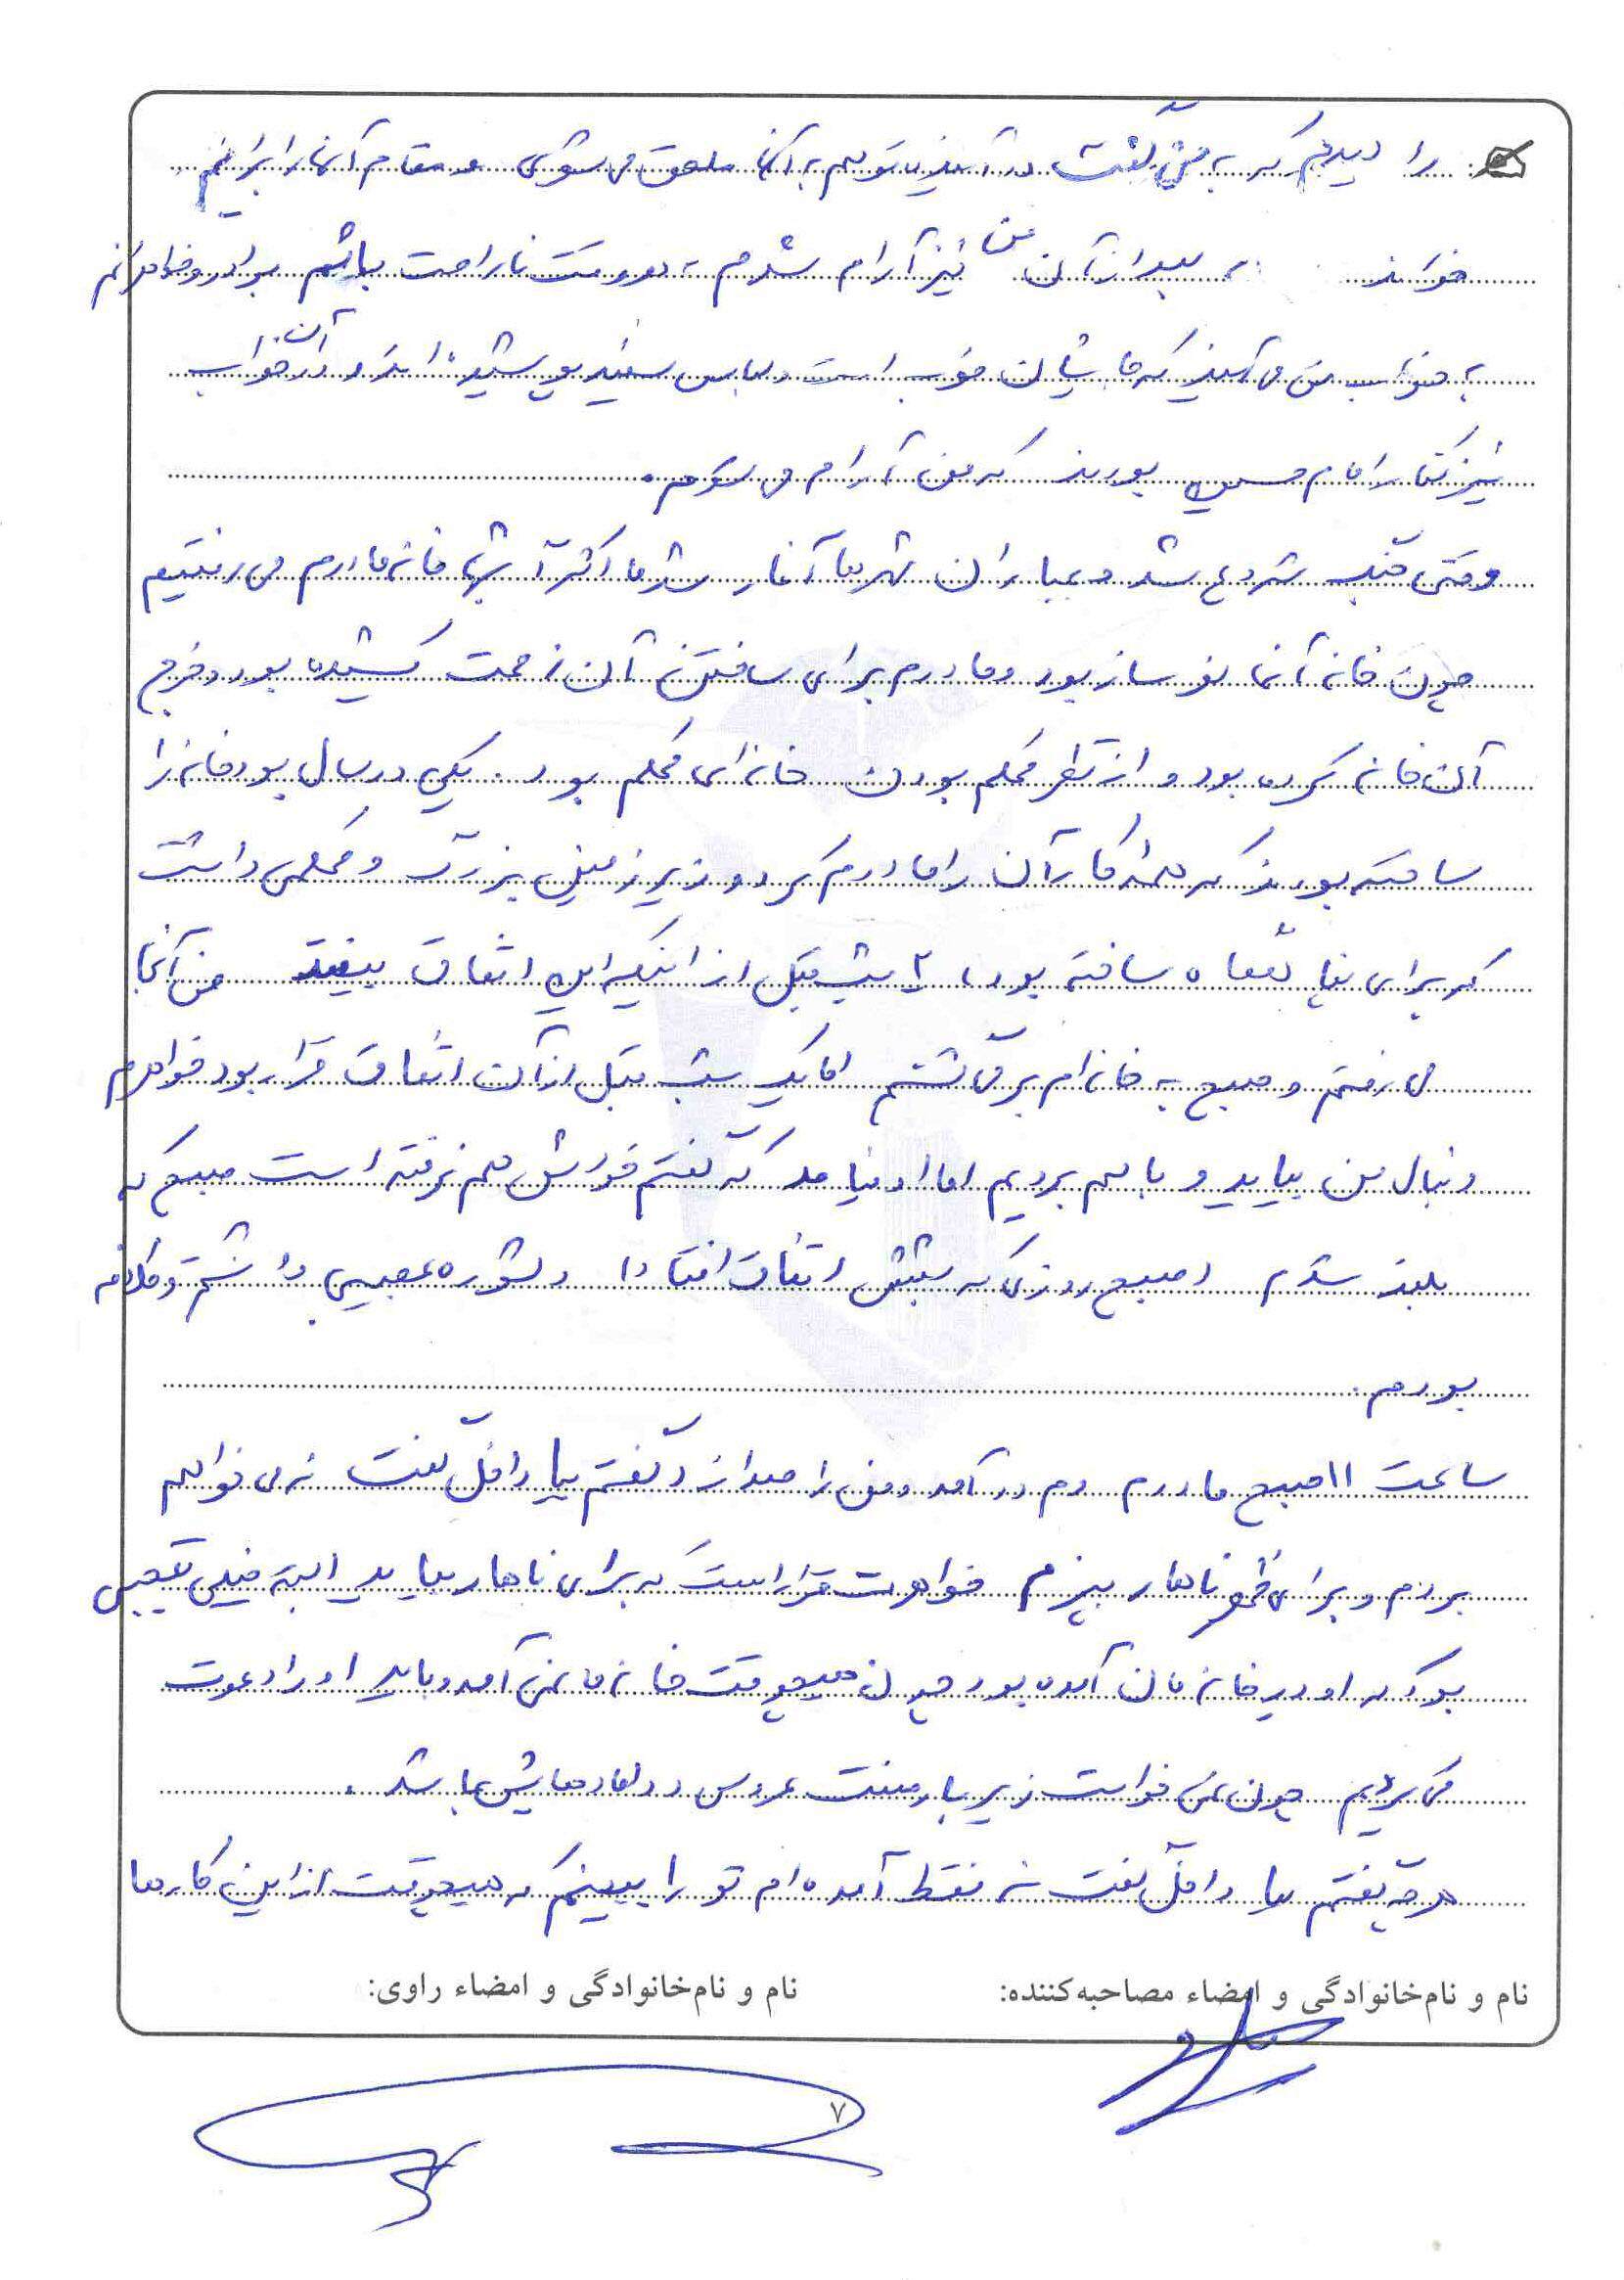 را دیدم که به من گفت در آینده تو هم به آنها ملحق می شوی و مقام آنها را برایم
خواند به بعد از آن من نیز آرام شدم هر وقت ناراحت باشم برادر و خواهرانم
به خواب من می آیند که جایشان خوب است و لباس سفید پوشیده اند در آن خواب
نیز کنار امام حسین بودند که من آرام می شوم.
وقتی جنگ شروع شد و بمباران شهرها آغاز شد ما اکثر شبها خانه مادرم می رفتیم
چون خانه آنها نوساز بود و مادرم برای ساختن آن زحمت کشیده بود و خرج
آن خانه کرده بود و از نظر محکم بودن خانه ای محکم بود. یکی دو سال بود خانه را
ساخته بودند که همه کار آن را مادرم کرد و زیرزمین بزرگ و محکمی داشت
که برای پناهگاه ساخته بود، ۲ شب قبل از اینکه این اتفاق بیفتد من آنجا
می رفتم و صبح به خانه ام برمی گشتم اما یک شب قبل از آن اتفاق قرار بود خواهرم
دنبال من بیاید و با هم برویم اما او نیامد که گفتم خوابش هم نرفته است صبح که
بلند شدم صبح روزی که شبش اتفاق افتاد دلشوره عجیبی داشتم و کلافه
بودم.
ساعت ۱۱ صبح مادرم دم در آمد و من را صدا زد گفتم بیا داخل گفت نه می خواهم
بروم و برای ظهر ناهار بپزم خواهرت قرار است که برای ناهار بیاید البته خیلی تعجبی
بود که او در خانه مان آمده بود چون هیچوقت خانه ما نمی آمد و باید او را دعوت
می کردیم چون نمی خواست زیر بار منت عروس و دامادهایش باشد.
هر چه گفتم بیا داخل گفت نه فقط آمده ام تو را ببینم که هیچوقت از این کارها
نام و نام‌خانوادگی و امضاء مصاحبه‌کننده:
نام و نام‌خانوادگی و امضاء راوی:
۷